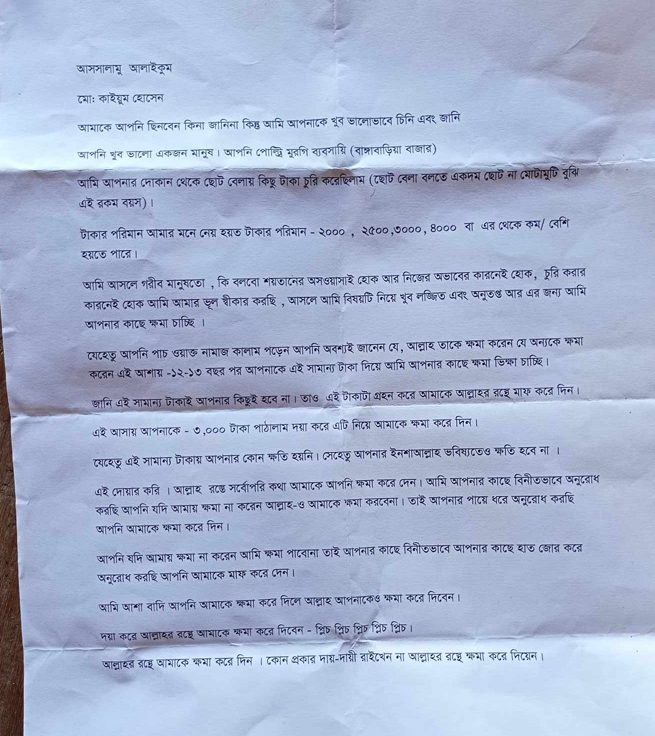 আসসালামু আলাইকুম
মো: কাইয়ুম হোসেন
আমাকে আপনি ছিনবেন কিনা জানিনা কিন্তু আমি আপনাকে খুব ভালোভাবে চিনি এবং জানি
আপনি খুব ভালো একজন মানুষ। আপনি পোল্ট্রি মুরগি ব্যবসায়ি (বাঙ্গাবাড়িয়া বাজার)
আমি আপনার দোকান থেকে ছোট বেলায় কিছু টাকা চুরি করেছিলাম (ছোট বেলা বলতে একদম ছোট না মোটামুটি বুঝি
এই রকম বয়স)।
টাকার পরিমান আমার মনে নেয় হয়ত টাকার পরিমান - ২০০০ , ২৫০০,৩০০০, ৪০০০ বা এর থেকে কম/ বেশি
হয়তে পারে।
আমি আসলে গরীব মানুষতো , কি বলবো শয়তানের অসওয়াসাই হোক আর নিজের অভাবের কারনেই হোক, চুরি করার
কারনেই হোক আমি আমার ভূল স্বীকার করছি , আসলে আমি বিষয়টি নিয়ে খুব লজ্জিত এবং অনুতপ্ত আর এর জন্য আমি
আপনার কাছে ক্ষমা চাচ্ছি ।
যেহেতু আপনি পাচ ওয়াক্ত নামাজ কালাম পড়েন আপনি অবশ্যই জানেন যে, আল্লাহ তাকে ক্ষমা করেন যে অন্যকে ক্ষমা
করেন এই আশায় -১২-১৩ বছর পর আপনাকে এই সামান্য টাকা দিয়ে আমি আপনার কাছে ক্ষমা ভিক্ষা চাচ্ছি।
জানি এই সামান্য টাকাই আপনার কিছুই হবে না। তাও এই টাকাটা গ্রহন করে আমাকে আল্লাহর রস্তে মাফ করে দিন।
এই আসায় আপনাকে - ৩,০০০ টাকা পাঠালাম দয়া করে এটি নিয়ে আমাকে ক্ষমা করে দিন।
যেহেতু এই সামান্য টাকায় আপনার কোন ক্ষতি হয়নি। সেহেতু আপনার ইনশাআল্লাহ ভবিষ্যতেও ক্ষতি হবে না ।
এই দোয়ার করি । আল্লাহ রস্তে সর্বোপরি কথা আমাকে আপনি ক্ষমা করে দেন। আমি আপনার কাছে বিনীতভাবে অনুরোধ
করছি আপনি যদি আমায় ক্ষমা না করেন আল্লাহ-ও আমাকে ক্ষমা করবেনা। তাই আপনার পায়ে ধরে অনুরোধ করছি
আপনি আমাকে ক্ষমা করে দিন।
আপনি যদি আমায় ক্ষমা না করেন আমি ক্ষমা পাবোনা তাই আপনার কাছে বিনীতভাবে আপনার কাছে হাত জোর করে
অনুরোধ করছি আপনি আমাকে মাফ করে দেন।
আমি আশা বাদি আপনি আমাকে ক্ষমা করে দিলে আল্লাহ আপনাকেও ক্ষমা করে দিবেন।
দয়া করে আল্লাহর রস্তে আমাকে ক্ষমা করে দিবেন - প্লিচ প্লিচ প্লিচ প্লিচ প্লিচ।
আল্লাহর রস্তে আমাকে ক্ষমা করে দিন । কোন প্রকার দায়-দায়ী রাইখেন না আল্লাহর রস্তে ক্ষমা করে দিয়েন।